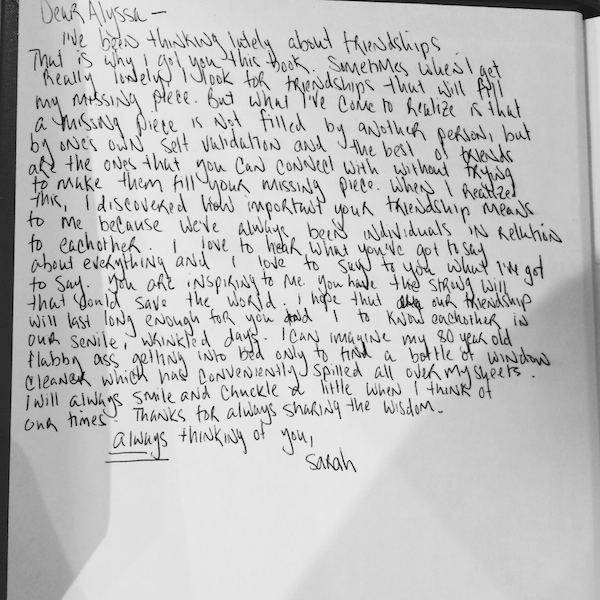 Dear Alyssa —
I've been thinking lately about friendships
That is why I got you this book. Sometimes when I get
really lonely I look for friendships that will fill
my missing piece. But what I've come to realize is that
a missing piece is not filled by another person, but
by one's own self validation and the best of friends
are the ones that you can connect with without trying
to make them fill your missing piece. When I realized
this, I discovered how important your friendship means
to me because we've always been individuals in relation
to eachother. I love to hear what you've got to say
about everything and I love to say to you what I've got
to say. You are inspiring to me. You have the strong will
that could save the world. I hope that our friendship
will last long enough for you and I to know eachother in
our senile, wrinkled days. I can imagine my 80 year old
flabby ass getting into bed only to find a bottle of window
cleaner which has conveniently spilled all over my sheets.
I will always smile and chuckle a little when I think of
our times. Thanks for always sharing the wisdom.
always thinking of you,
Sarah